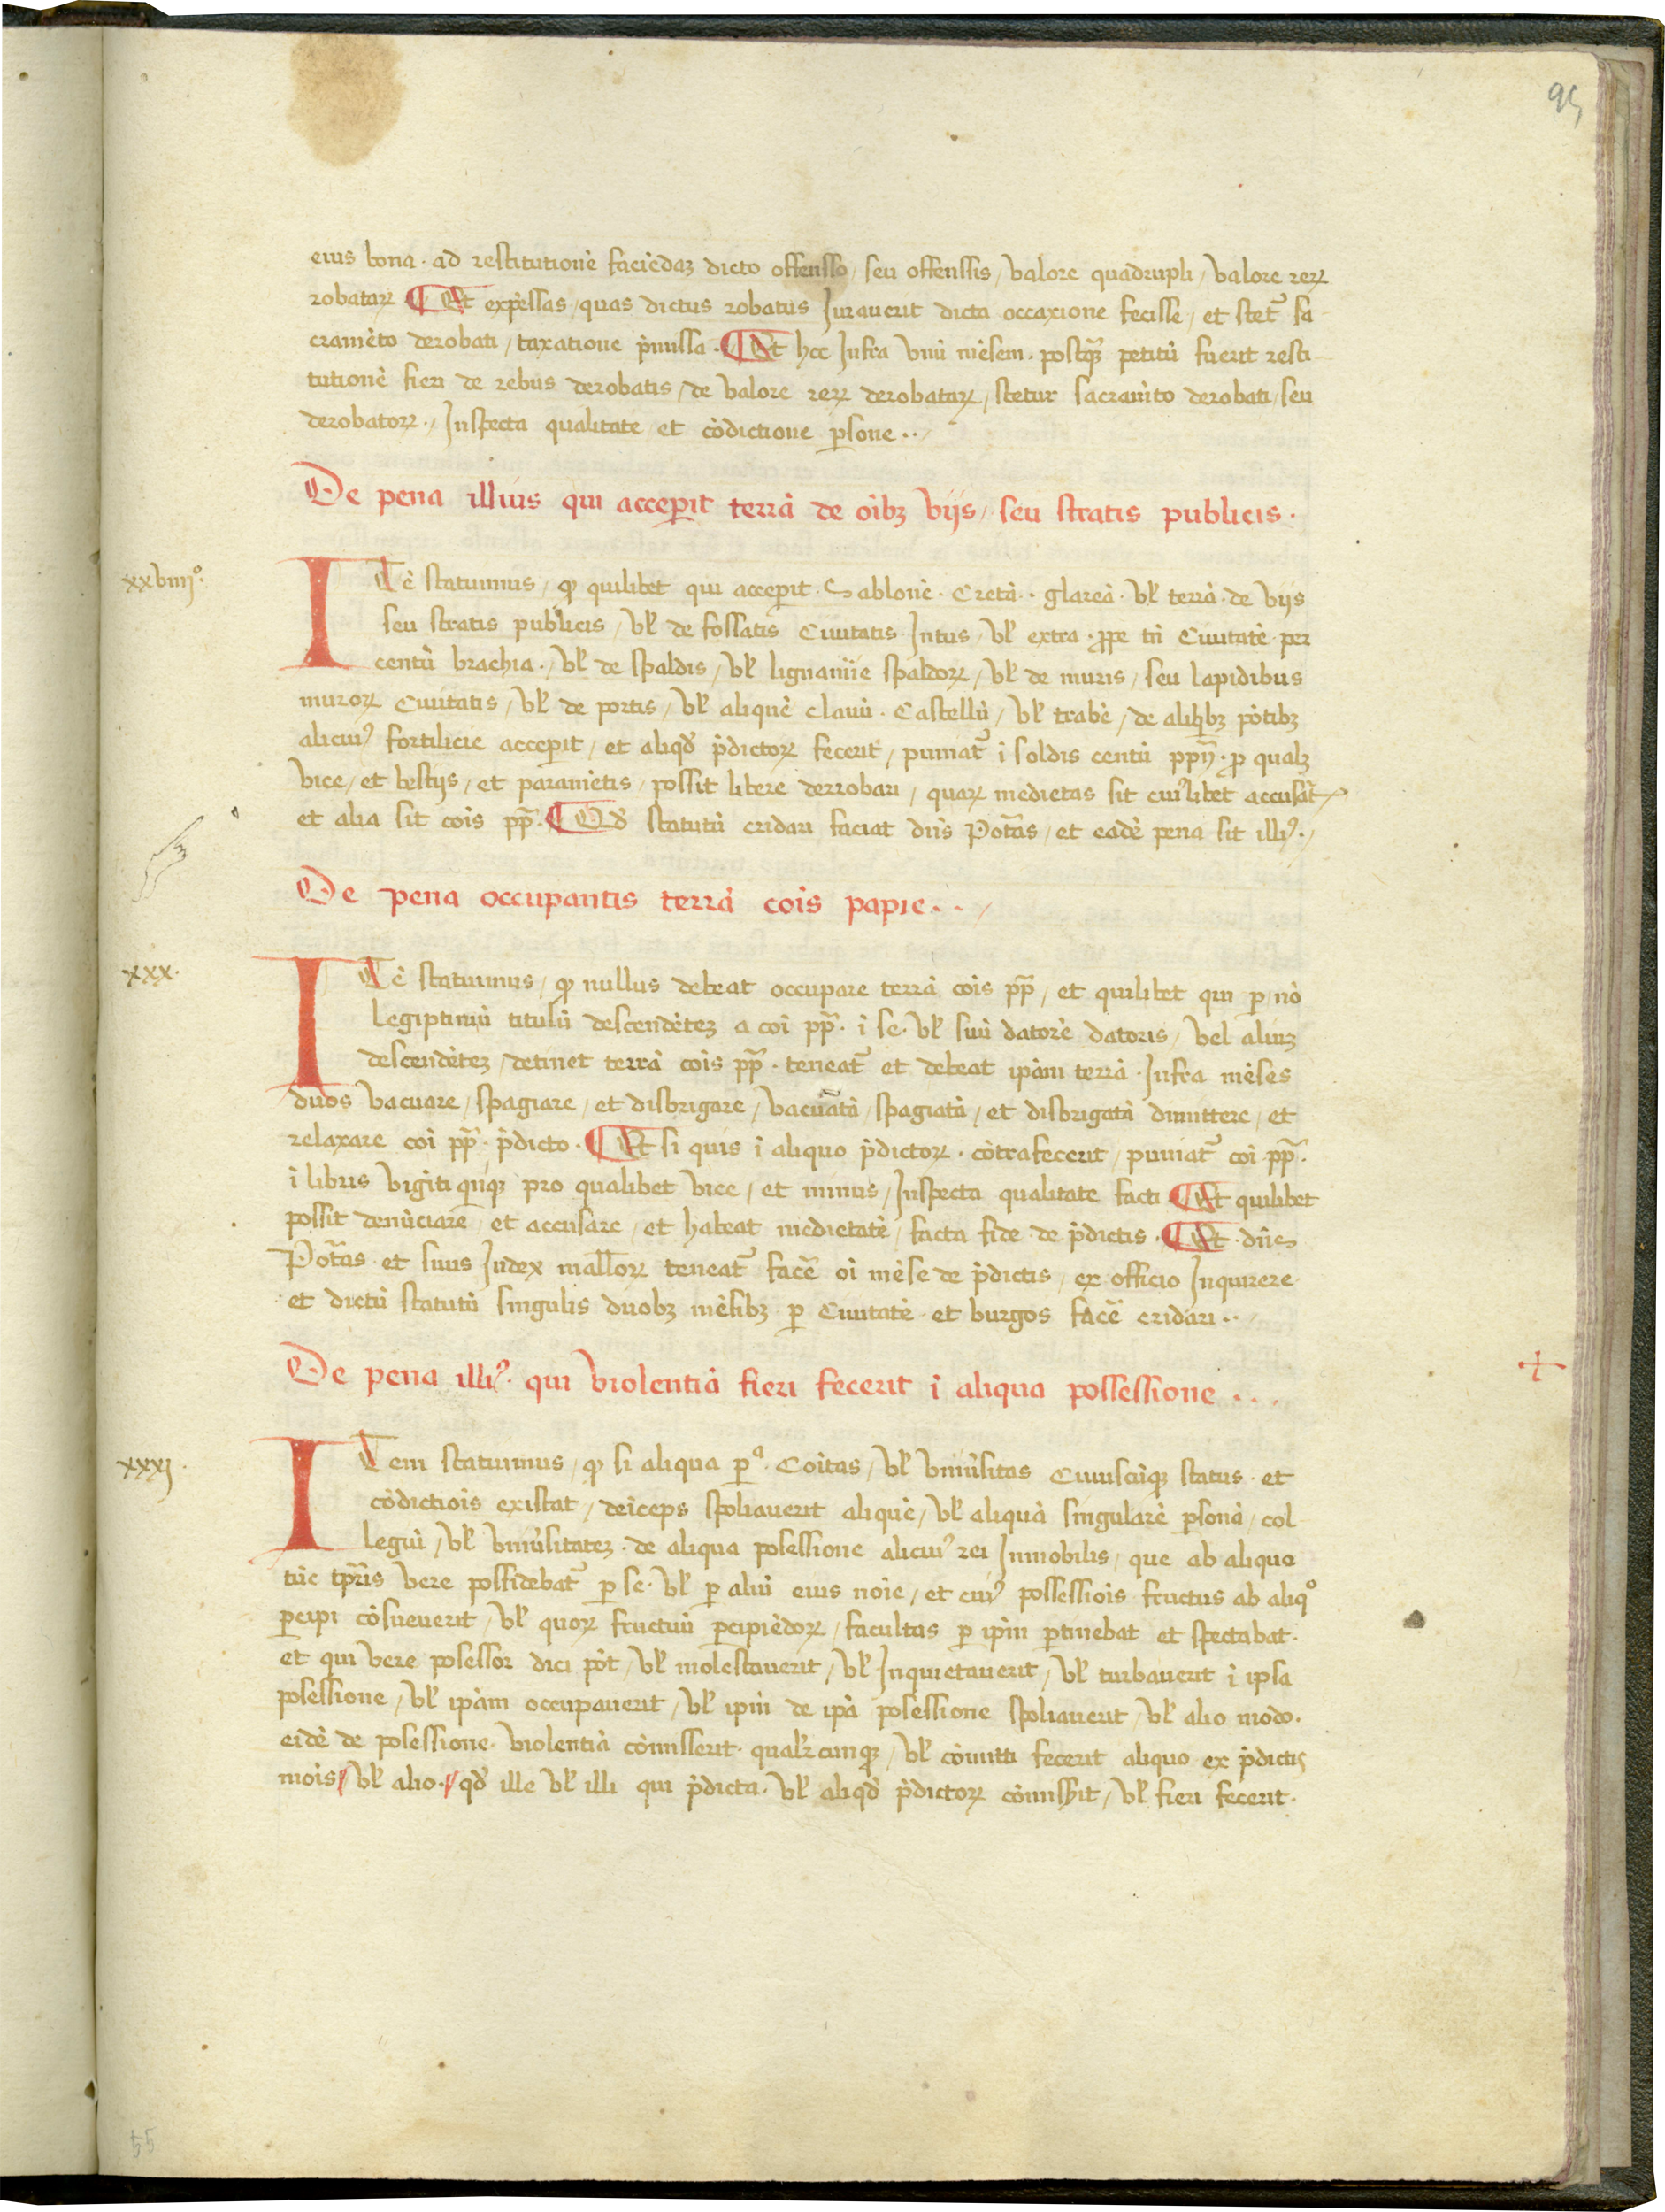 95
eius bona · ad restitutionē faciēdaꝫ dicto offensso / seu offenssis / valore quadrupli / valore reꝝ
robataꝝ ¶ Et expēssas / quas dictus robatus Jurauerit dicta occaxione fecisse / et stet᷑ sa
cramēto derobati / taxatione p̄missa · ¶ Et hec Jnfra vnū mēsem · postqꝫ petitū fuerit resti
tutionē fieri de rebus derobatis / de valore reꝝ derobataꝝ / stetur sacram̄to derobati / seu
derobatoꝝ · / Jnspecta qualitate et cōdictione ꝑsone · · /
De pena illius qui acceperit terrā de oībꝫ viis / seu stratis publicis ·
xxviiijº·
ITē statuimus / qꝫ quilibet qui acceperit · Sablonē · Cretā · · glareā · vƚ terrā · de viis
seu stratis publicis / vƚ de fossatis Ciuitatis Jntus / vƚ extra · ꝓpe tn̄ Ciuitatē · per
centū brachia · / vƚ de spaldis / vƚ lignamie spaldoꝝ / vƚ de muris / seu lapidibus
muroꝝ Ciuitatis / vƚ de portis / vƚ aliquē clauū · Castellū / vƚ trabē / de alibꝫ pōtibꝫ
alicuiꝰ fortilicie acceperit / et aliqd̄ p̄dictoꝝ fecerit / puniat᷑ ī soldis centū ppn̄ · ꝓ qualꝫ
vice / et bestiis / et paramētis / possit libere derrobari / quaꝝ medietas sit cuiꝰlibet accusāt᷑
et alia sit cōis pp̄ · ¶ Qd̄ statutū cridari faciat dn̄s Potās / et eadē pena sit illiꝰ · /
De pena occupantis terrā cōis papie · · /
xxx·
ITē statuimus / qꝫ nullus debeat occupare terrā cōis pp̄ / et quilibet qui ꝑ nō
legiptimū titulū descendēteꝫ a cōi pp̄ · ī se · vƚ suū datorē datoris / vel aliuꝫ
descendēteꝫ / detinet terrā cōis pp̄ · teneat᷑ et debeat ipām terrā · Jnfra mēses
duos vacuare / spagiare / et disbrigare / vacuatā / spagiatā / et disbrigatā dimittere / et
relaxare cōi pp̄ · p̄dicto · ¶ Et si quis ī aliquo p̄dictoꝝ · cōtrafecerit / puniat᷑ cōi pp̄ ·
ī libris vigīti qnqꝫ pro qualibet vice / et minus / Jnspecta qualitate facti ¶ Et quilibet
possit denūciare / et accusare / et habeat medietatē / facta fide de p̄dictis · ¶ Et · dn̄s
Potās et suus Judex malloꝝ teneat᷑ facē oī mēse de p̄dictis / ex officio Jnquirere
et dictū statutū singulis duobꝫ mēsibꝫ ꝑ Ciuitatē et burgos facē cridari · · /
De pena illiꝰ · qui violentiā fieri fecerit ī aliqua possessione · · ·
xxxj·
ITem statuimus / qꝫ si aliqua ꝑª · Coītas / vƚ vniūsitas Cuiuscūqꝫ status · et
cōdictiois existat / deīceps spoliauerit aliquē / vƚ aliquā singularē ꝑsonā / col
legiū / vƚ vniūsitateꝫ · de aliqua posessione alicuiꝰ rei Jnmobilis / que ab aliquo
tūc tp̄ris vere possidebat᷑ ꝑ se · vƚ ꝑ aliū eius noīe / et cuiꝰ possessiois fructus ab aliqº
ꝑcipi cōsueuerit / vƚ quoꝝ fructuū ꝑcipiēdoꝝ / facultas ꝑ ip̄m ꝑtinebat et spectabat ·
et qui vere posessor dici pōt / vƚ molestauerit / vƚ Jnquietauerit / vƚ turbauerit ī ipsa
posessione / vƚ ipām occupauerit / vƚ ip̄m de ipā posessione spoliauerit / vƚ alio modo ·
eidē de posessione · violentiā cōmisserit · qualꝫcunqꝫ / vƚ cōmitti fecerit aliquo ex p̄dictis
mōis / vƚ alio · / qd̄ ille vƚ illi qui p̄dicta · vƚ aliqd̄ p̄dictoꝝ cōmisserit / vƚ fieri fecerit ·
55